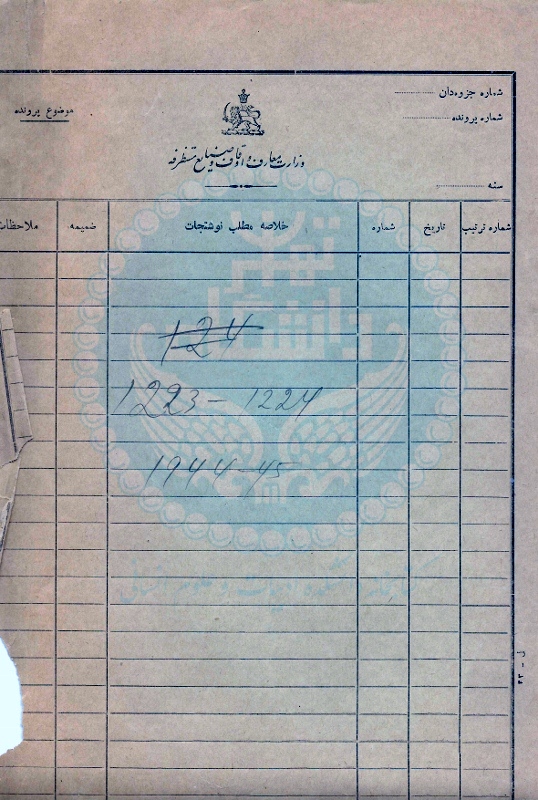 شماره جزوه‌دان
شماره پرونده
موضوع پرونده
وزارت معارف و اوقاف و صنایع مستظرفه
سنه
شماره ترتیب
تاریخ
شماره
خلاصه مطلب نوشتجات
ضمیمه
ملاحظات
دانشگاه تهران
124
1223 - 1224
1944-45
ل - ۲۳